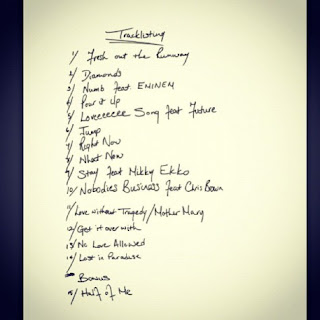 Tracklisting
1/ Fresh out the Runway
2/ Diamonds
3/ Numb feat EMINEM
4/ Pour it Up
5/ Loveeeeeee Song feat Future
6/ Jump
7/ Right Now
8/ What Now
9/ Stay feat Mikky Ekko
10/ Nobodies Business feat Chris Brown
11/ Love Without Tragedy/Mother Mary
12/ Get it over with
13/ No Love Allowed
14/ Lost in Paradise
Bonus
15/ Half of Me